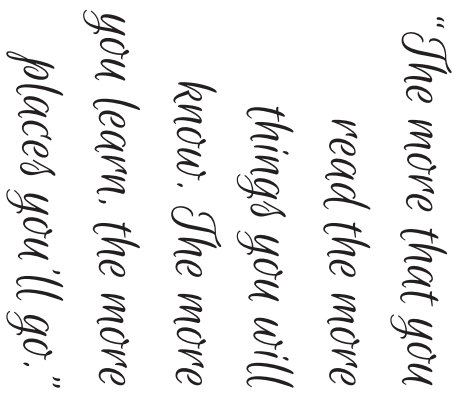 "The more that you
read the more
things you will
know. The more
you learn, the more
places you'll go."